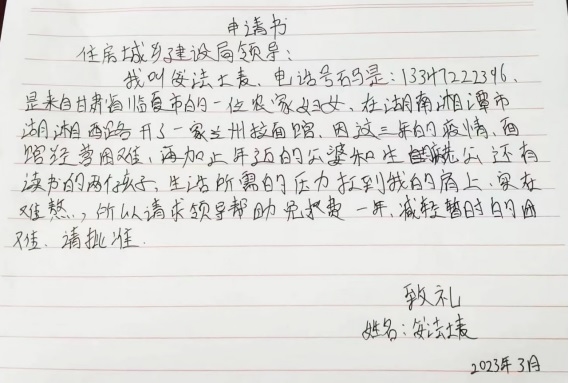 申请书
住房城乡建设局领导:
我叫安法土麦、电话号码是:13347222396、
是来自甘肃省临夏市的一位农家妇女、在湖南湘潭市
湖湘西路开了一家兰州拉面馆、因这三年的疫情、面
馆经营困难、再加上年迈的公婆和生病老公还有
读书的两个孩子、生活所需的压力扛到我的肩上、实在
难熬、所以请求领导帮助免摊费一年、减轻暂时的困
难、请批准.
致礼
姓名:安法土麦
2023年3月